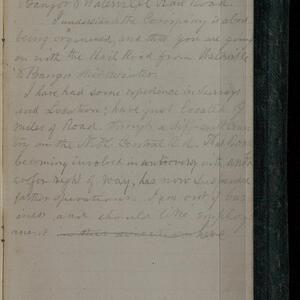 Bangor & Waterville Rail Road.
I understand the Company is about
being organized, and that you are going
on with the Rail Road from Waterville
to Bangor
I have had some experience in Surveys
and Location; have just Located
miles of Road, through a difficult Coun
try on the N.H. Central R.d. That Com
becoming involved in controversy with
for right of way, has now Suspended
farther operations. I am out of bus
iness and should like employ
ment in this direction here